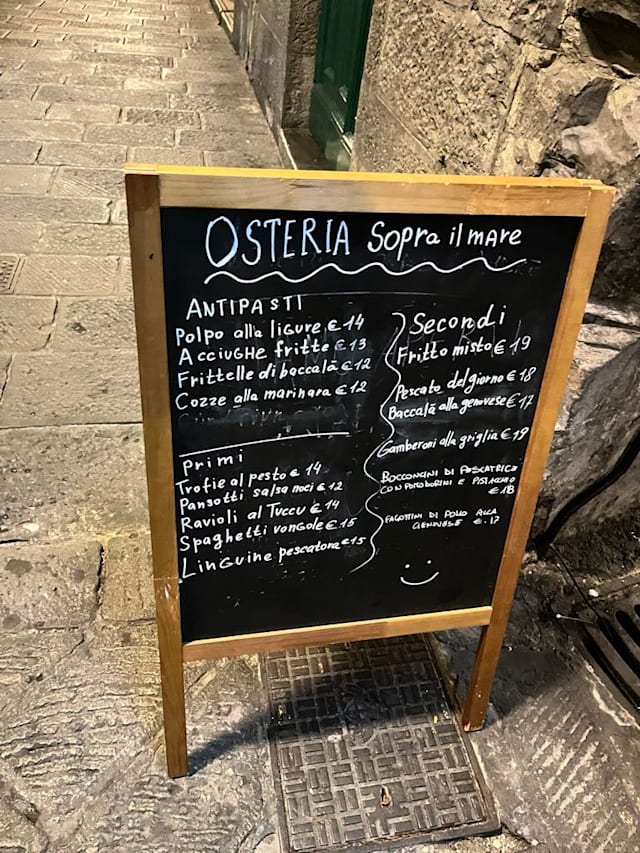 OSTERIA Sopra il mare
ANTIPASTI
Polpo alla ligure € 14
AcciugHe fritte € 13
Frittelle di baccalà € 12
Cozze alla marinara € 12
Primi
Trofie al pesto € 14
Pansotti salsa noci € 12
Ravioli al Tuccu € 14
Spaghetti vongole € 15
Linguine pescatora € 15
Secondi
Fritto misto € 19
Pescato del giorno € 18
Baccalà alla genovese € 17
Gamberoni alla griglia € 19
BOCCONCINI DI PESCATRICE
CON POMODORINI E PISTACCHIO
€ 18
FAGOTTINI DI POLLO ALLA
GENOVESE €. 17